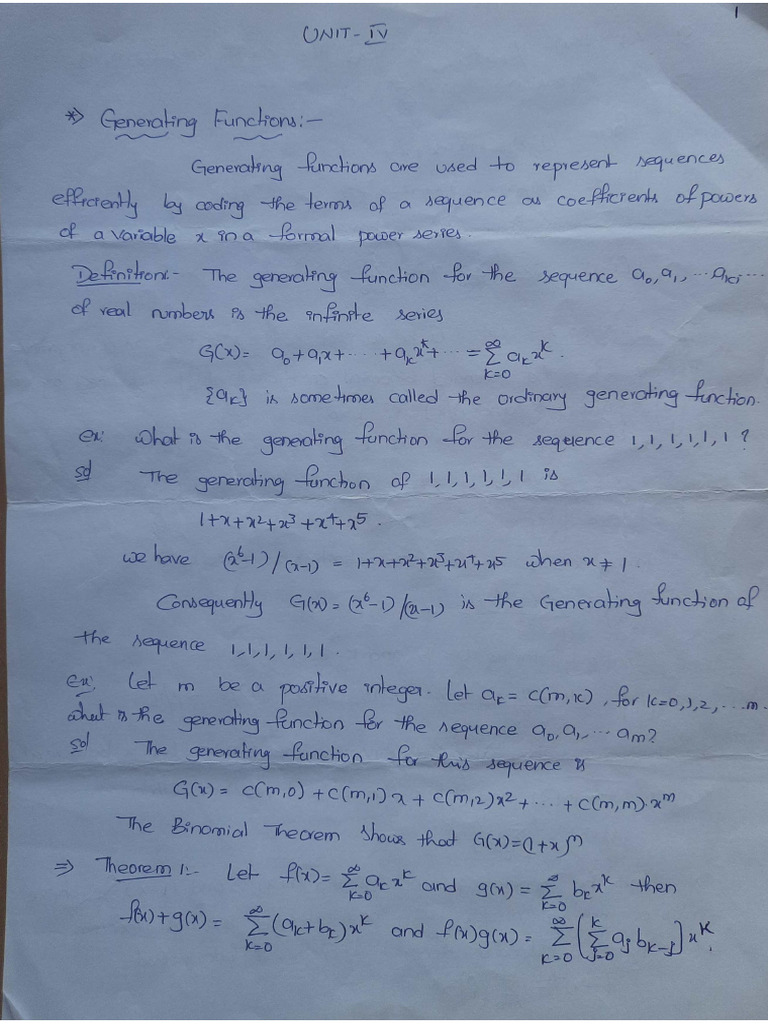 1
UNIT-IV
*⇒ Generating Functions:-
Generating functions are used to represent sequences
efficiently by coding the terms of a sequence as coefficients of powers
of a variable x in a formal power series.
Definition:- The generating function for the sequence a₀, a₁, ... aₖ, ...
of real numbers is the infinite series
G(x) = a₀ + a₁x + ..... + aₖxᵏ + ... = ∞Σk=0 aₖxᵏ.
{aₖ} is sometimes called the ordinary generating function.
ex: What is the generating function for the sequence 1,1,1,1,1,1?
sol The generating function of 1,1,1,1,1,1 is
1+x+x²+x³+x⁴+x⁵.
we have (x⁶-1)/(x-1) = 1+x+x²+x³+x⁴+x⁵ when x ≠ 1.
Consequently G(x) = (x⁶-1)/(x-1) is the Generating function of
the sequence 1,1,1,1,1,1.
ex: Let m be a positive integer. Let aₖ = C(m,k), for k=0,1,2,...m.
what is the generating function for the sequence a₀, a₁, ... aₘ?
sol The generating function for this sequence is
G(x) = C(m,0) + C(m,1)x + C(m,2)x² + ... + C(m,m).xᵐ
The Binomial Theorem shows that G(x)=(1+x)ᵐ
⇒ Theorem 1:- Let f(x) = ∞Σk=0 aₖxᵏ and g(x) = ∞Σk=0 bₖxᵏ then
f(x)+g(x) = ∞Σk=0 (aₖ+bₖ)xᵏ and f(x)g(x) = ∞Σk=0 (kΣj=0 aⱼ bₖ₋ⱼ) xᵏ.